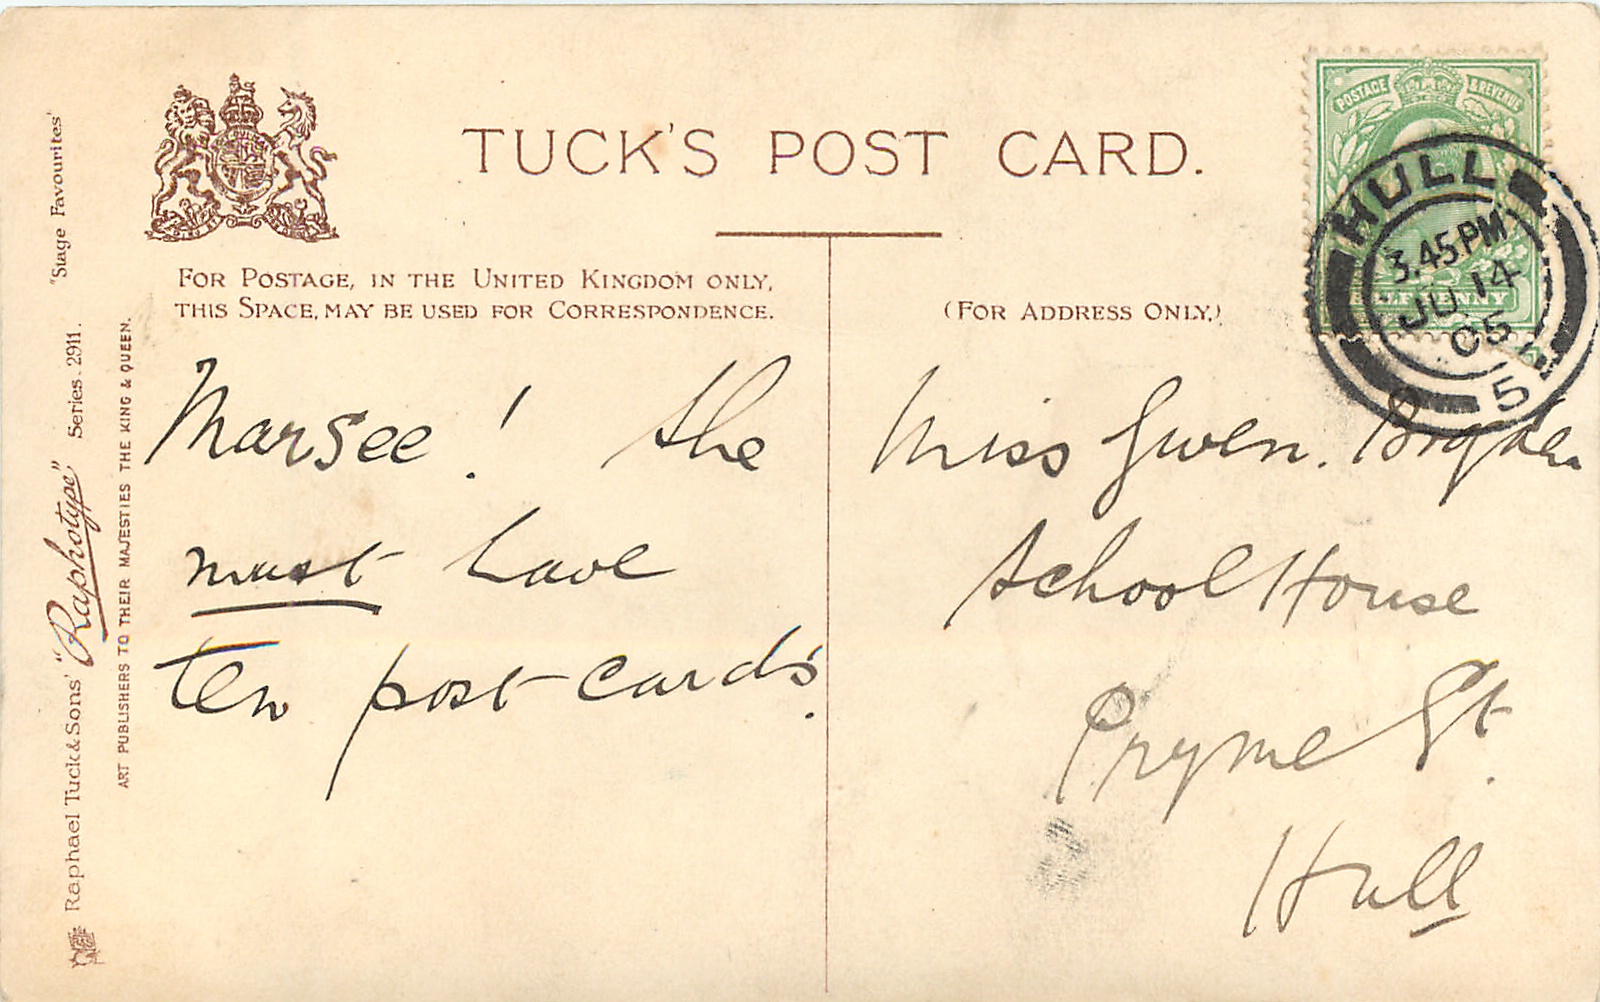 TUCK'S POST CARD.
FOR POSTAGE, IN THE UNITED KINGDOM ONLY,
THIS SPACE, MAY BE USED FOR CORRESPONDENCE.
(FOR ADDRESS ONLY.)
POSTAGE & REVENUE
HALFPENNY
HULL
3.45 PM
JU 14
05
5
Marsee! the
must have
ten post cards.
Miss Gwen.
School House
Pryme St.
Hull
Raphael Tuck & Sons' "Raphotype" Series. 2911. "Stage Favourites"
ART PUBLISHERS TO THEIR MAJESTIES THE KING & QUEEN.